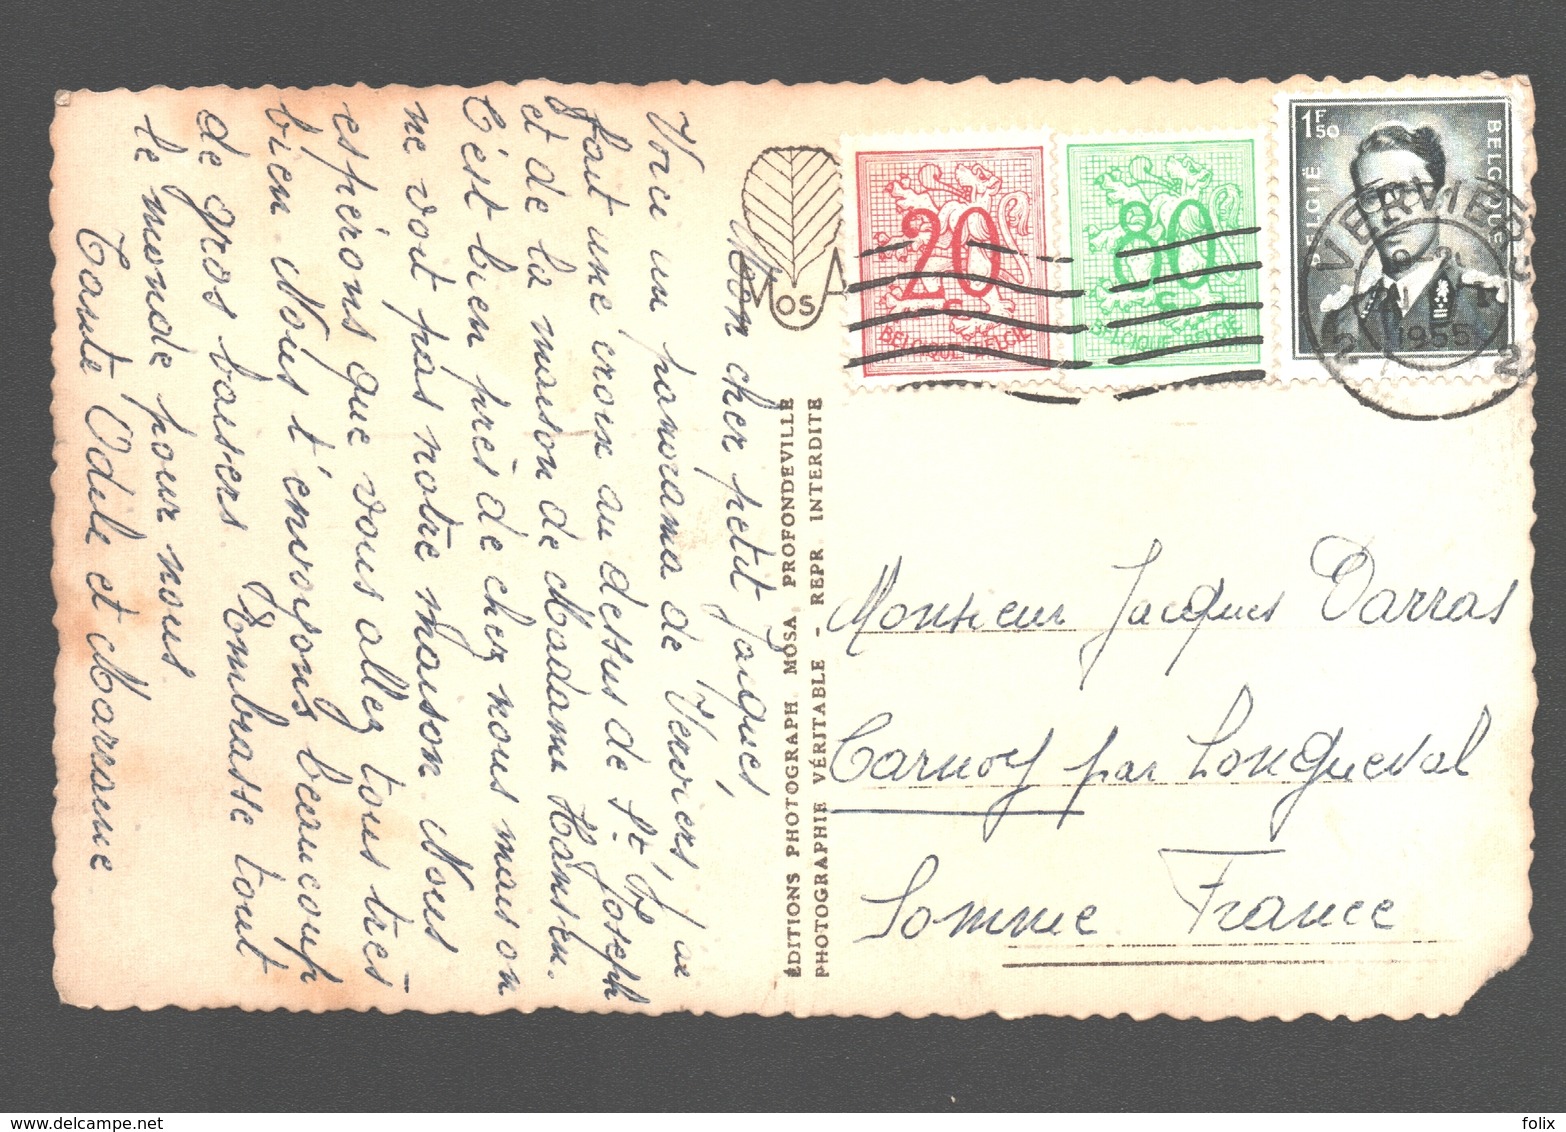 Mon cher petit Jacques,
Voici un panorama de Verviers, j'ai
fait une croix au dessus de St Joseph
et de la maison de Madame Hansen.
C'est bien près de chez nous mais on
ne voit pas notre maison. Nous
espérons que vous allez tous très
bien. Nous t'envoyons beaucoup
de gros baisers. Embrasse tout
le monde pour nous
Tante Odile et Marraine
MOSA
ÉDITIONS PHOTOGRAPH MOSA PROFONDEVILLE
PHOTOGRAPHIE VÉRITABLE - REPR. INTERDITE
20
BELGIQUE BELGIË
80
BELGIQUE BELGIË
1F50
BELGIË
BELGIQUE
VERVIERS
1955
2 2
Monsieur Jacques Darras
Carnoy par Longueval
Somme France
folix
delcampe.net